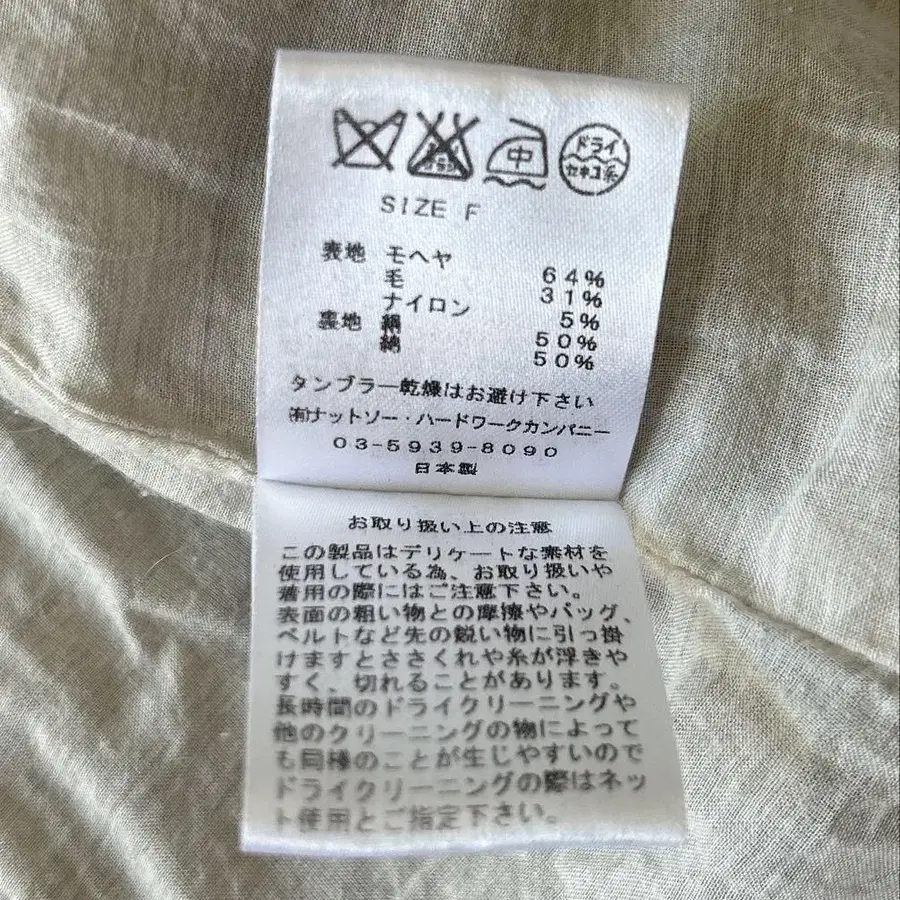 中
ドライ
セキユ系
SIZE F
表地 モヘヤ 64%
毛 31%
ナイロン 5%
裏地 絹 50%
綿 50%
タンブラー乾燥はお避け下さい
㈲ナットソー・ハードワークカンパニー
03-5939-8090
日本製
お取り扱い上の注意
この製品はデリケートな素材を
使用している為、お取り扱いや
着用の際にはご注意下さい。
表面の粗い物との摩擦やバッグ、
ベルトなど先の鋭い物に引っ掛
けますとささくれや糸が浮きや
すく、切れることがあります。
長時間のドライクリーニングや
他のクリーニングの物によって
も同様のことが生じやすいので
ドライクリーニングの際はネッ
ト使用とご指定下さい。